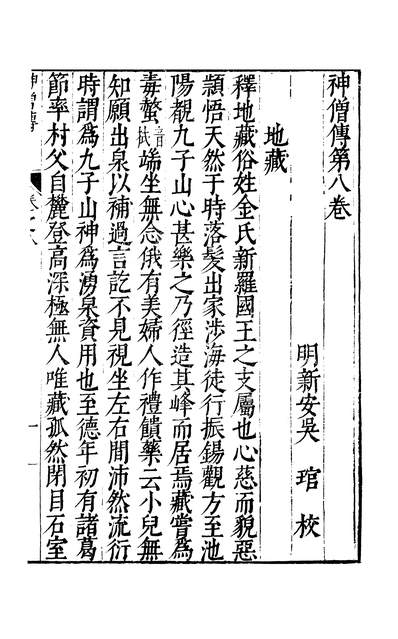 神僧傳第八卷
明新安吳琯校
地藏
釋地藏俗姓金氏新羅國王之支屬也心慈而貌惡
顙悟天然于時落髮出家涉海徒行振錫觀方至池
陽覩九子山心甚樂之乃徑造其峰而居焉藏嘗為
毒螫音拭端坐無念俄有美婦人作禮饋藥云小兒無
知願出泉以補過言訖不見視坐左右間沛然流衍
時謂為九子山神為湧泉資用也至德年初有諸葛
節率村父自麓登高深極無人唯藏孤然閉目石室
神僧傳
卷之八
一